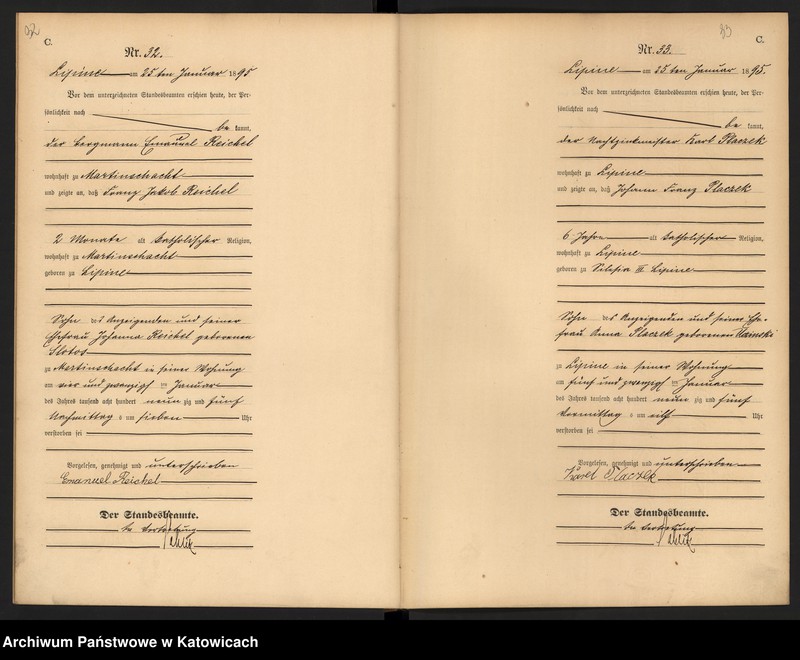 32
C.
Nr. 32.
Lipine am 25ten Januar 1895
Vor dem unterzeichneten Standesbeamten erschien heute, der Per-
sönlichkeit nach
be kannt,
der Bergmann Emanuel Reichel
wohnhaft zu Martinschacht
und zeigte an, daß Franz Jakob Reichel
2 Monate alt katholischer Religion,
wohnhaft zu Martinschacht
geboren zu Lipine
Sohn des Anzeigenden und seiner
Ehefrau Johanna Reichel geborenen
Slotos
zu Martinschacht in seiner Wohnung
am vier und zwanzigsten Januar
des Jahres tausend acht hundert neun zig und fünf
Nachmittag s um sieben Uhr
verstorben sei
Vorgelesen, genehmigt und unterschrieben
Emanuel Reichel
Der Standesbeamte.
In Vertretung
33
C.
Nr. 33.
Lipine am 25ten Januar 1895.
Vor dem unterzeichneten Standesbeamten erschien heute, der Per-
sönlichkeit nach
be kannt,
der Nachtzinkmeister Karl Placzek
wohnhaft zu Lipine
und zeigte an, daß Johann Franz Placzek
6 Jahre alt katholischer Religion,
wohnhaft zu Lipine
geboren zu Silesia III Lipine
Sohn des Anzeigenden und seiner Ehe-
frau Anna Placzek geborenen
zu Lipine in seiner Wohnung
am fünf und zwanzigsten Januar
des Jahres tausend acht hundert neun zig und fünf
Vormittag s um elf Uhr
verstorben sei
Vorgelesen, genehmigt und unterschrieben
Karl Placzek
Der Standesbeamte.
In Vertretung
Archiwum Państwowe w Katowicach